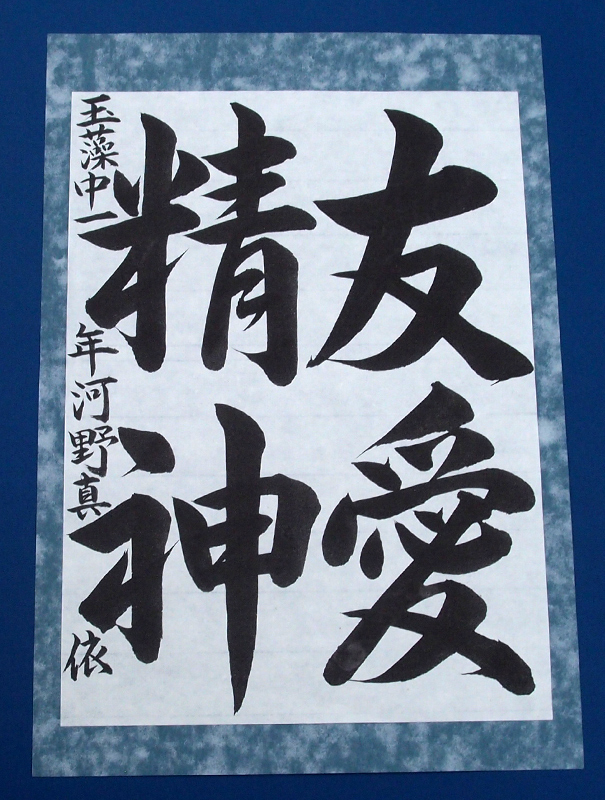 友愛
精神
玉藻中一年河野真依